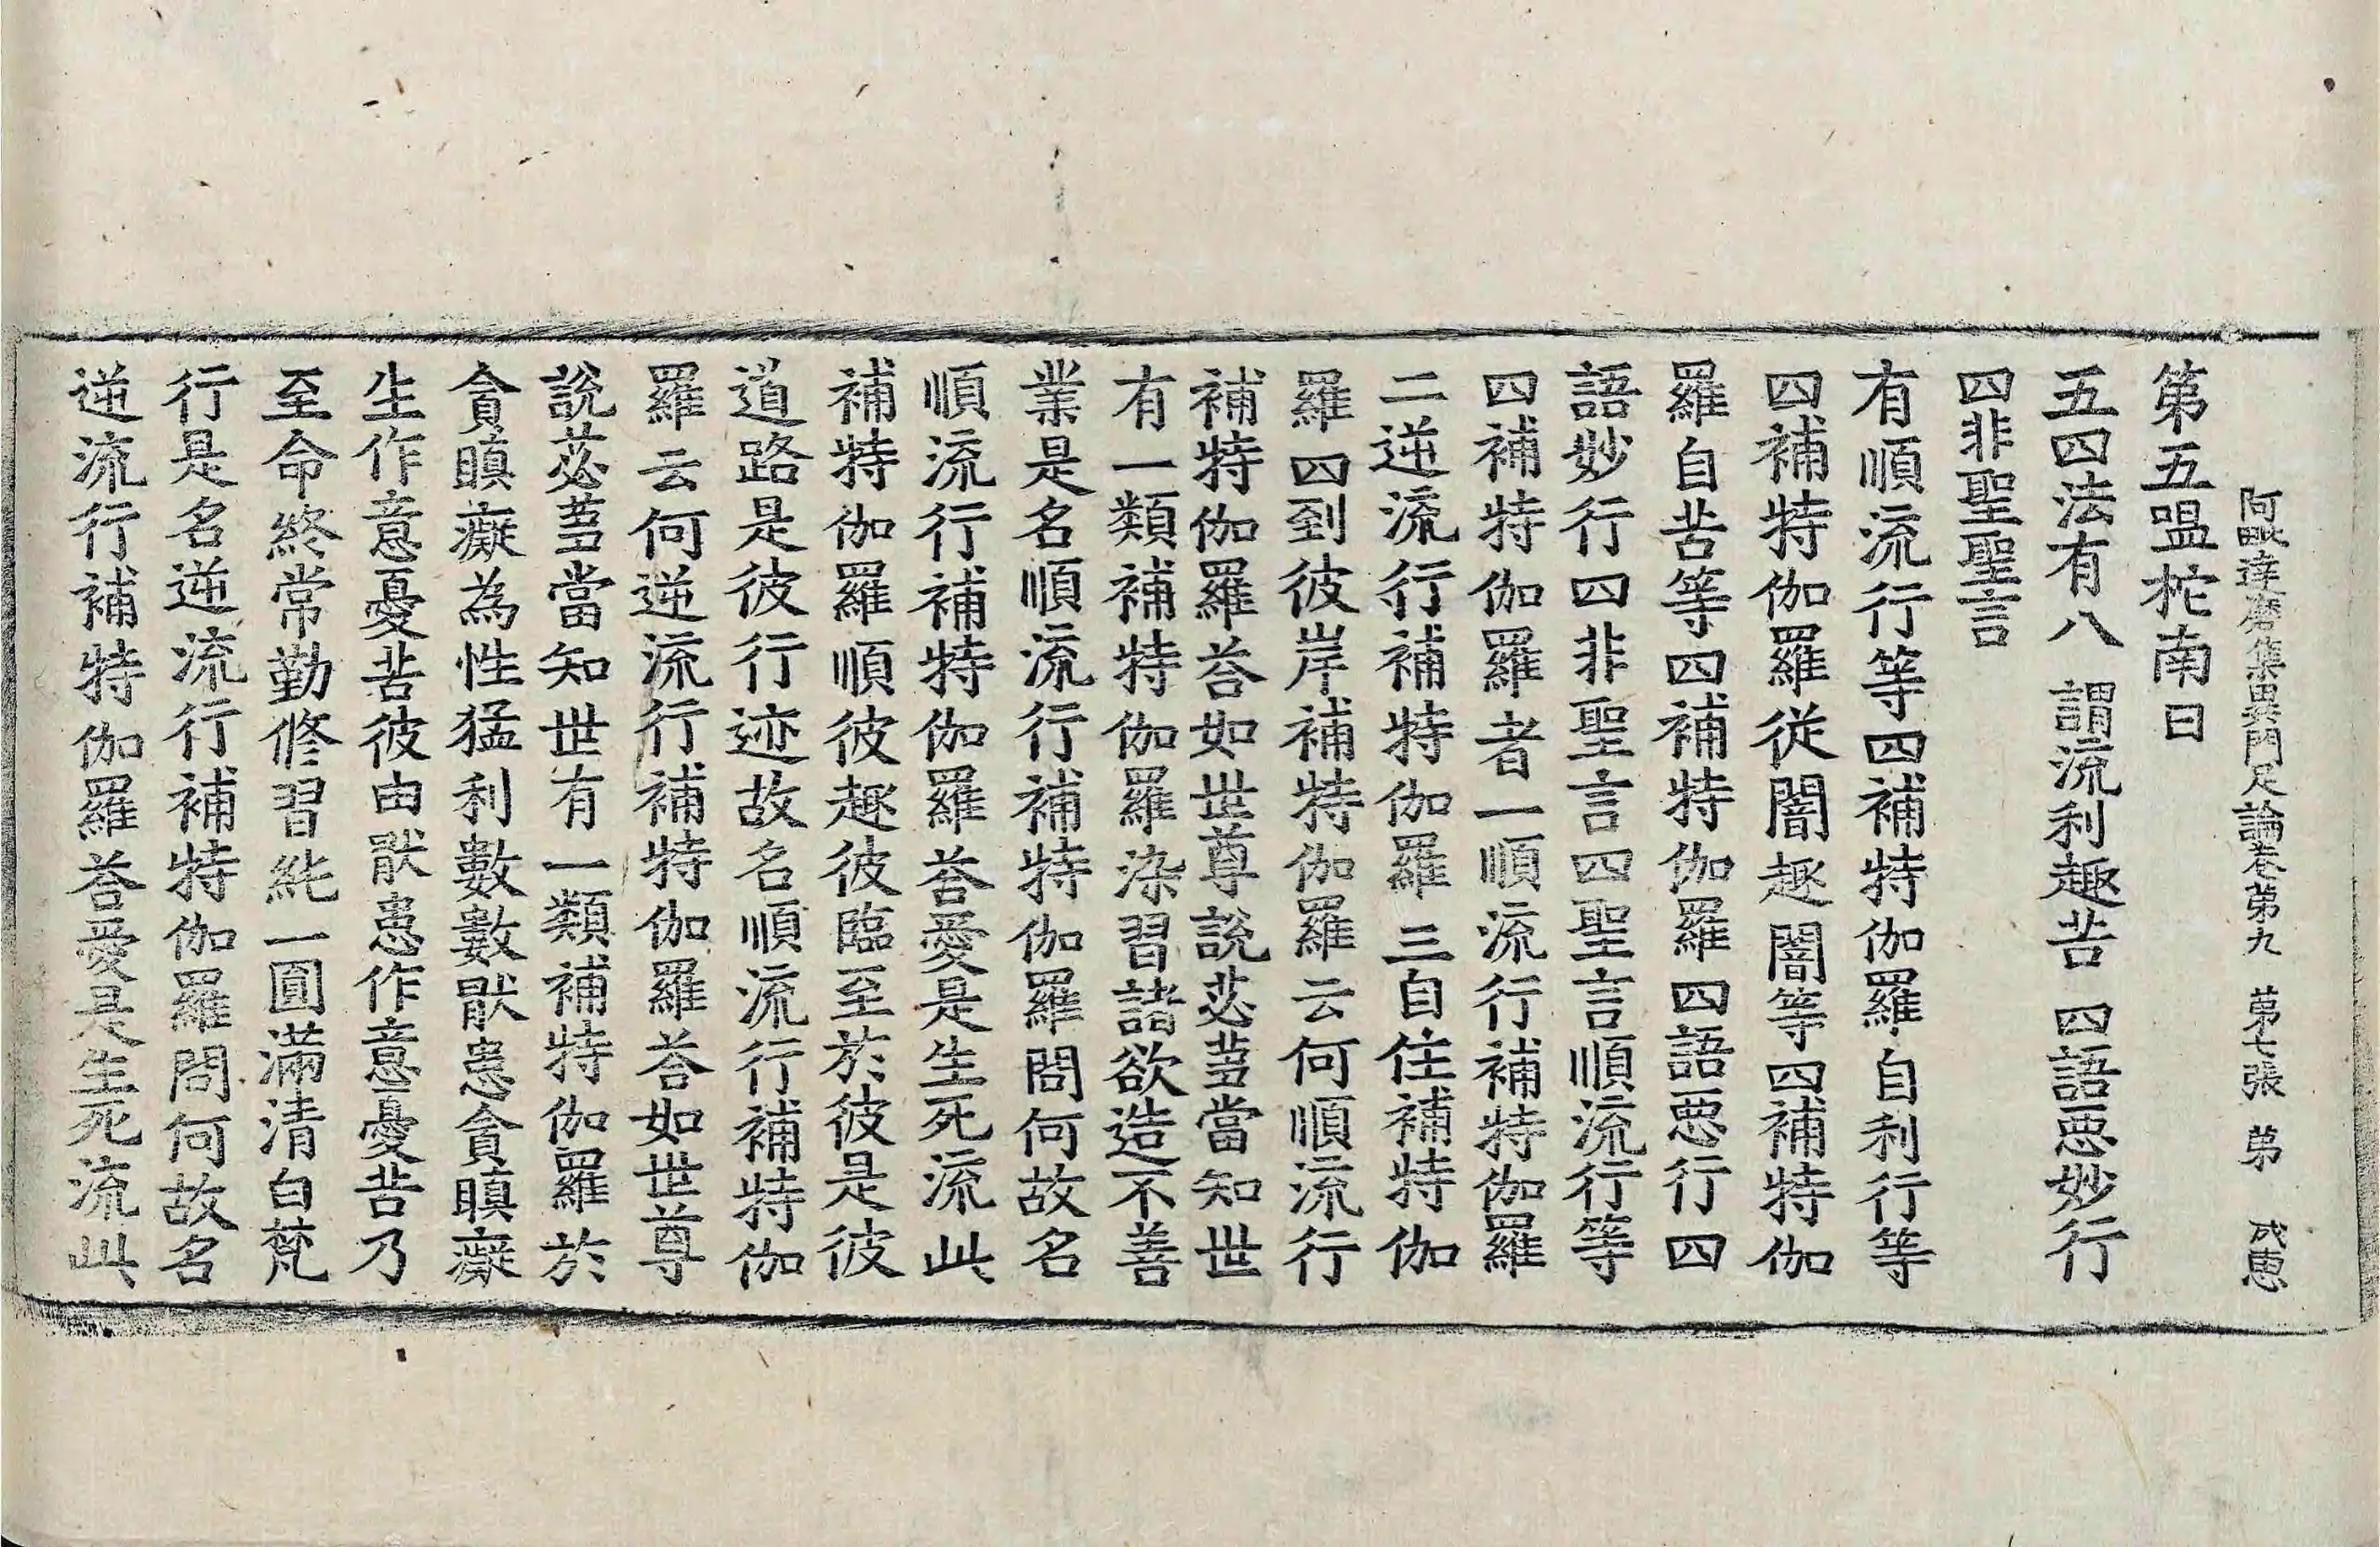 阿毗達磨集異門足論卷第九 第七張 第 成惠
第五嗢柁南曰
五四法有八 謂流利趣苦 四語惡妙行
四非聖聖言
有順流行等四補特伽羅自利行等
四補特伽羅從闇趣闇等四補特伽
羅自苦等四補特伽羅四語惡行四
語妙行四非聖言四聖言順流行等
四補特伽羅者一順流行補特伽羅
二逆流行補特伽羅三自住補特伽
羅四到彼岸補特伽羅云何順流行
補特伽羅荅如世尊說苾芻當知世
有一類補特伽羅染習諸欲造不善
業是名順流行補特伽羅問何故名
順流行補特伽羅荅愛是生死流此
補特伽羅順彼趣彼臨至於彼是彼
道路是彼行迹故名順流行補特伽
羅云何逆流行補特伽羅荅如世尊
說苾芻當知世有一類補特伽羅於
貪瞋癡為性猛利數數猒患貪瞋癡
生作意憂苦彼由猒患作意憂苦乃
至命終常勤修習純一圓滿清白梵
行是名逆流行補特伽羅問何故名
逆流行補特伽羅荅愛是生死流此